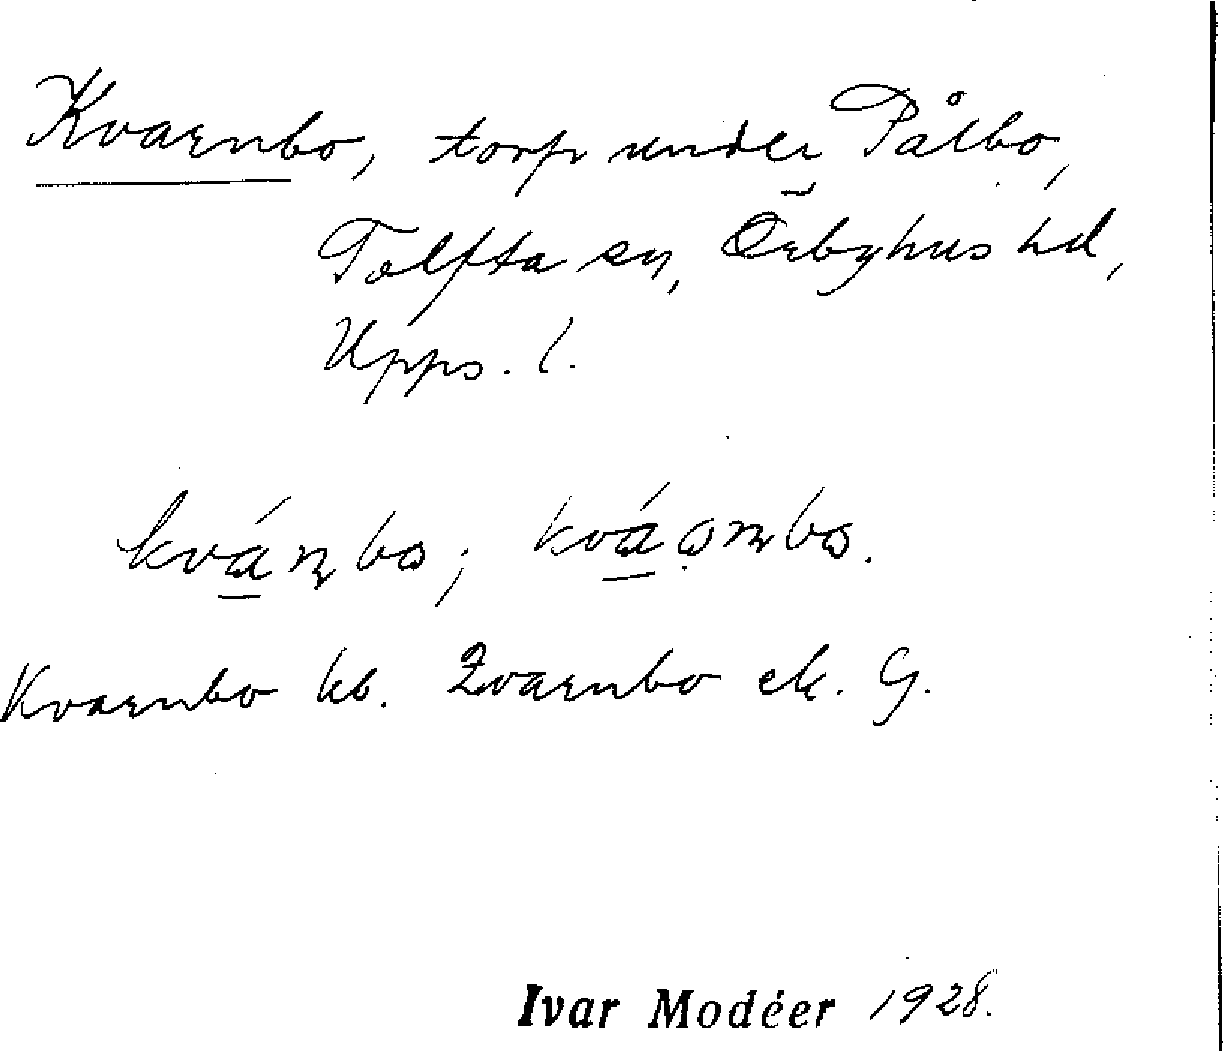 Kvarnbo, torp under Pålbo,
Tolfta sn, Örbyhus hd,
Upps. l.
kvánbo;
Kvarnbo kb. Qvarnbo ek. G.
Ivar Modéer 1928.